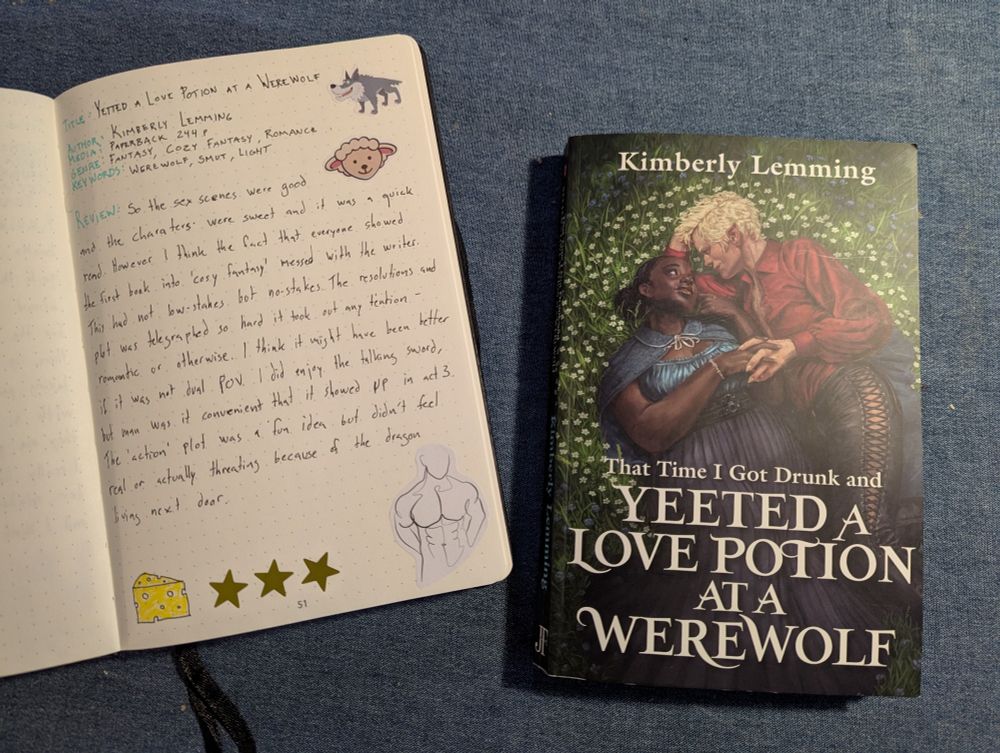 TITLE: YETTED A LOVE POTION AT A WEREWOLF
AUTHOR: KIMBERLY LEMMING
MEDIA: PAPERBACK 244 P
GENRE: FANTASY, COZY FANTASY, ROMANCE
KEYWORDS: WEREWOLF, SMUT, LIGHT
REVIEW: So the sex scenes were good
and the charaters were sweet and it was a quick
read. However I think the fact that everyone showed
the first book into 'cosy fantasy' messed with the writer.
This had not low-stakes but no-stakes. The resolutions and
plot was telegraphed so hard it took out any tention -
romantic or otherwise. I think it might have been better
if it was not dual POV. I did enjoy the talking sword,
but man was it convenient that it showed up in act 3.
The 'action' plot was a fun idea but didn't feel
real or actually threating because of the dragon
living next door.
51
Kimberly Lemming
That Time I Got Drunk and
YEETED A
LOVE POTION
AT A
WEREWOLF
Kimberly Lemming